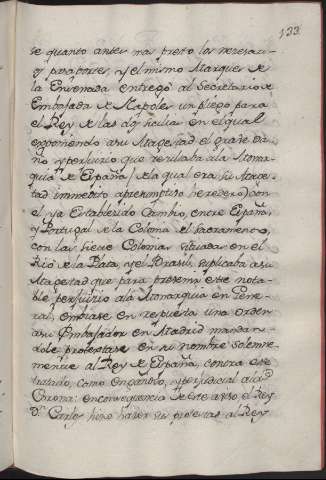 133
se quanto antes mas presto los necesari-
os pasaportes, y el mismo Marques de
la Ensenada entregò al Secretario de
Embajada de Napoles un pliego para
el Rey de las dos sicilias en el qual
exponiendo asu Magestad el grave da-
ño y perjuicio que resultaba ala Monar-
quia de España (de la qual era su Mages-
tad immediato apresumptivo heredero) con
el ya Establecido Cambio, entre España,
y Portugal de la Colonia del Sacramento,
con las siete Colonias situadas en el
Rio de la Plata, y el Brasil. suplicaba asu
Magestad que para preserva este nota-
ble perjuicio ala Monarquia en Gene-
ral, embiase en respuesta una orden
asu Embajador en Madrid mandan-
dole protestase en su nombre solemne-
mente al Rey de España, contra este
tratado, como engañoso, y perjudicial ala
Corona: enconsequencia de este aviso el Rey
Dn. Carlos hizo hacer sus protestas al Rey